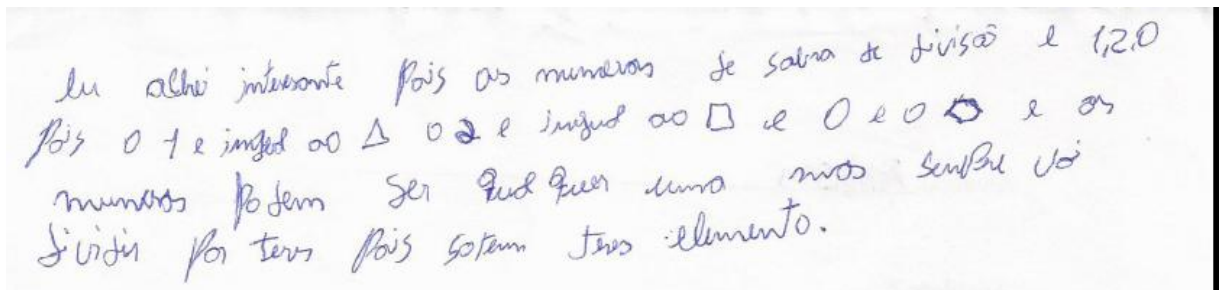 Eu alhei interesante pois os numeros de sobra de divisão e 1,2,0
Pois o 1 e ingual ao △ o 2 e ingual ao □ e 0 e o ⬠ e os
numeros podem ser qualquer uma mas senpre vai
dividir por teres pois sotem teres elemento.